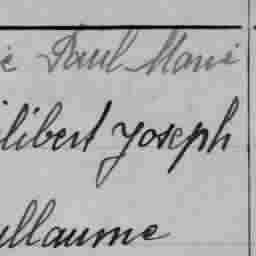 Paul Marie
ilibert Joseph
uillaume